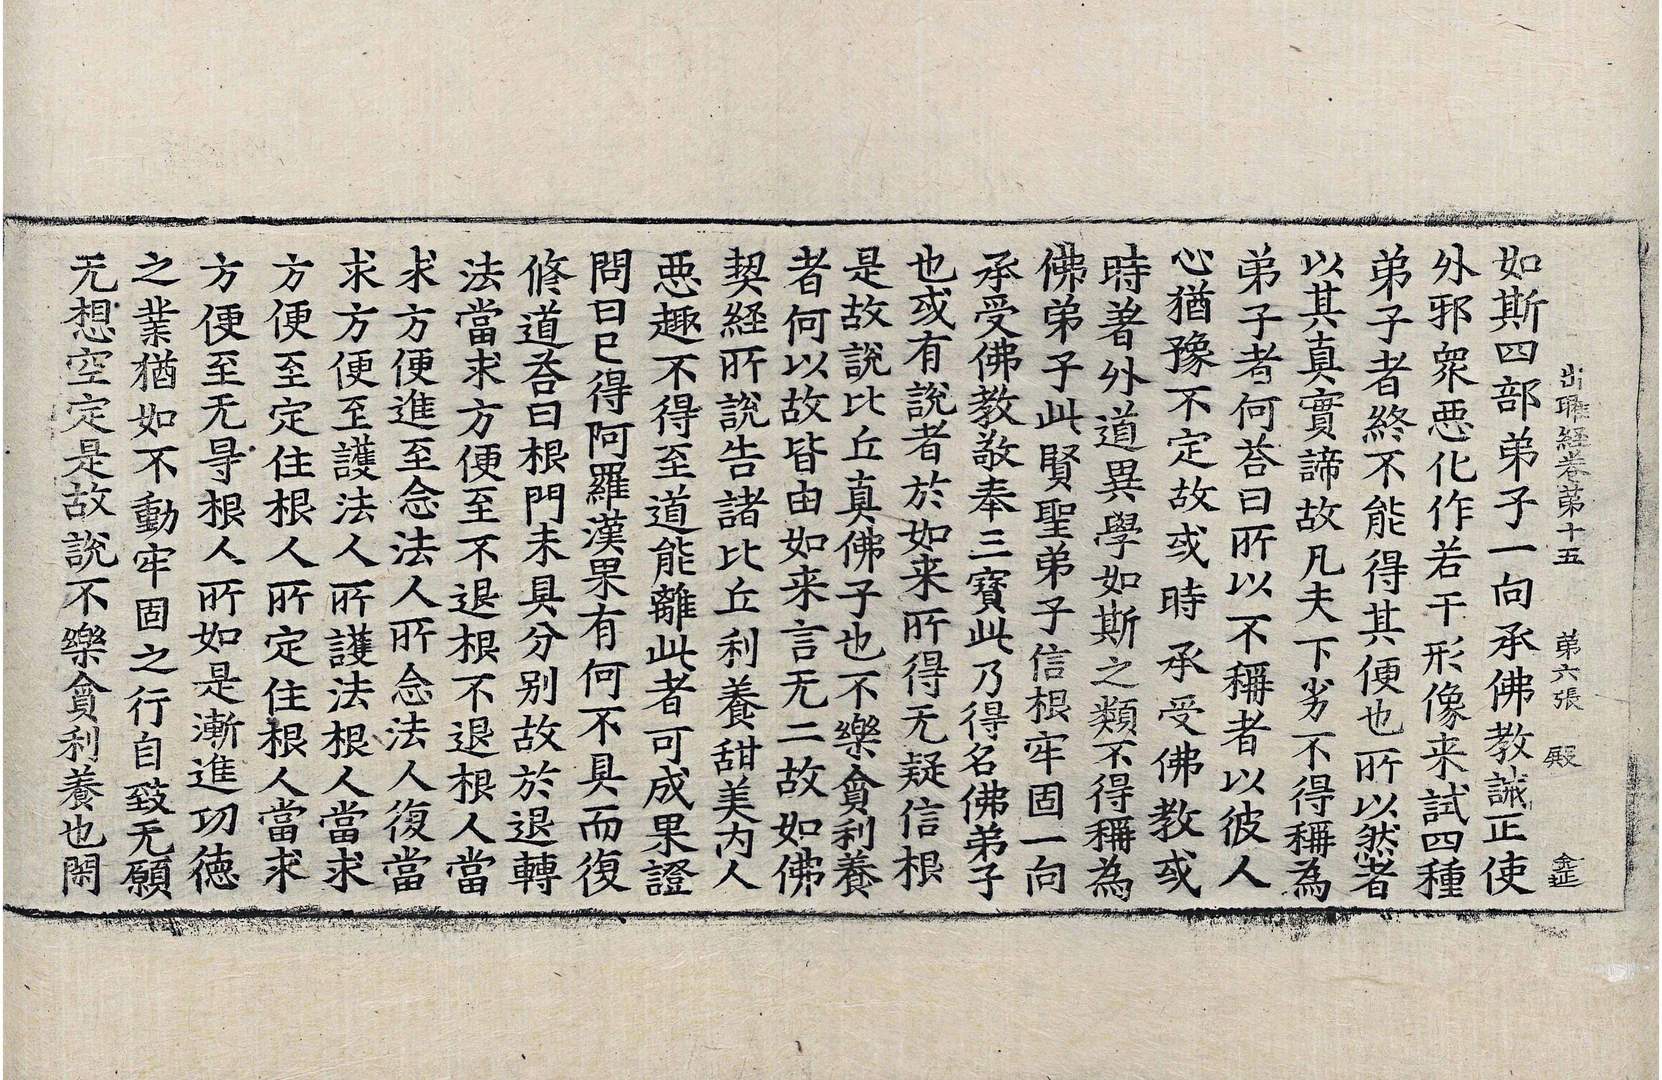 出曜経卷第十五 第六張 殿
如斯四部弟子一向承佛教誡正使
外邪衆惡化作若干形像来試四種
弟子者終不能得其便也所以然者
以其真實諦故凡夫下劣不得稱為
弟子者何荅曰所以不稱者以彼人
心猶豫不定故或時承受佛教或
時著外道異學如斯之類不得稱為
佛弟子此賢聖弟子信根牢固一向
承受佛教敬奉三寶此乃得名佛弟子
也或有說者於如来所得无疑信根
是故說比丘真佛子也不樂貪利養
者何以故皆由如来言无二故如佛
契経所說告諸比丘利養甜美內人
惡趣不得至道能離此者可成果證
問曰已得阿羅漢果有何不具而復
修道荅曰根門未具分別故於退轉
法當求方便至不退根不退根人當
求方便進至念法人所念法人復當
求方便至護法人所護法根人當求
方便至定住根人所定住根人當求
方便至无㝵根人所如是漸進功德
之業猶如不動牢固之行自致无願
无想空定是故說不樂貪利養也閑